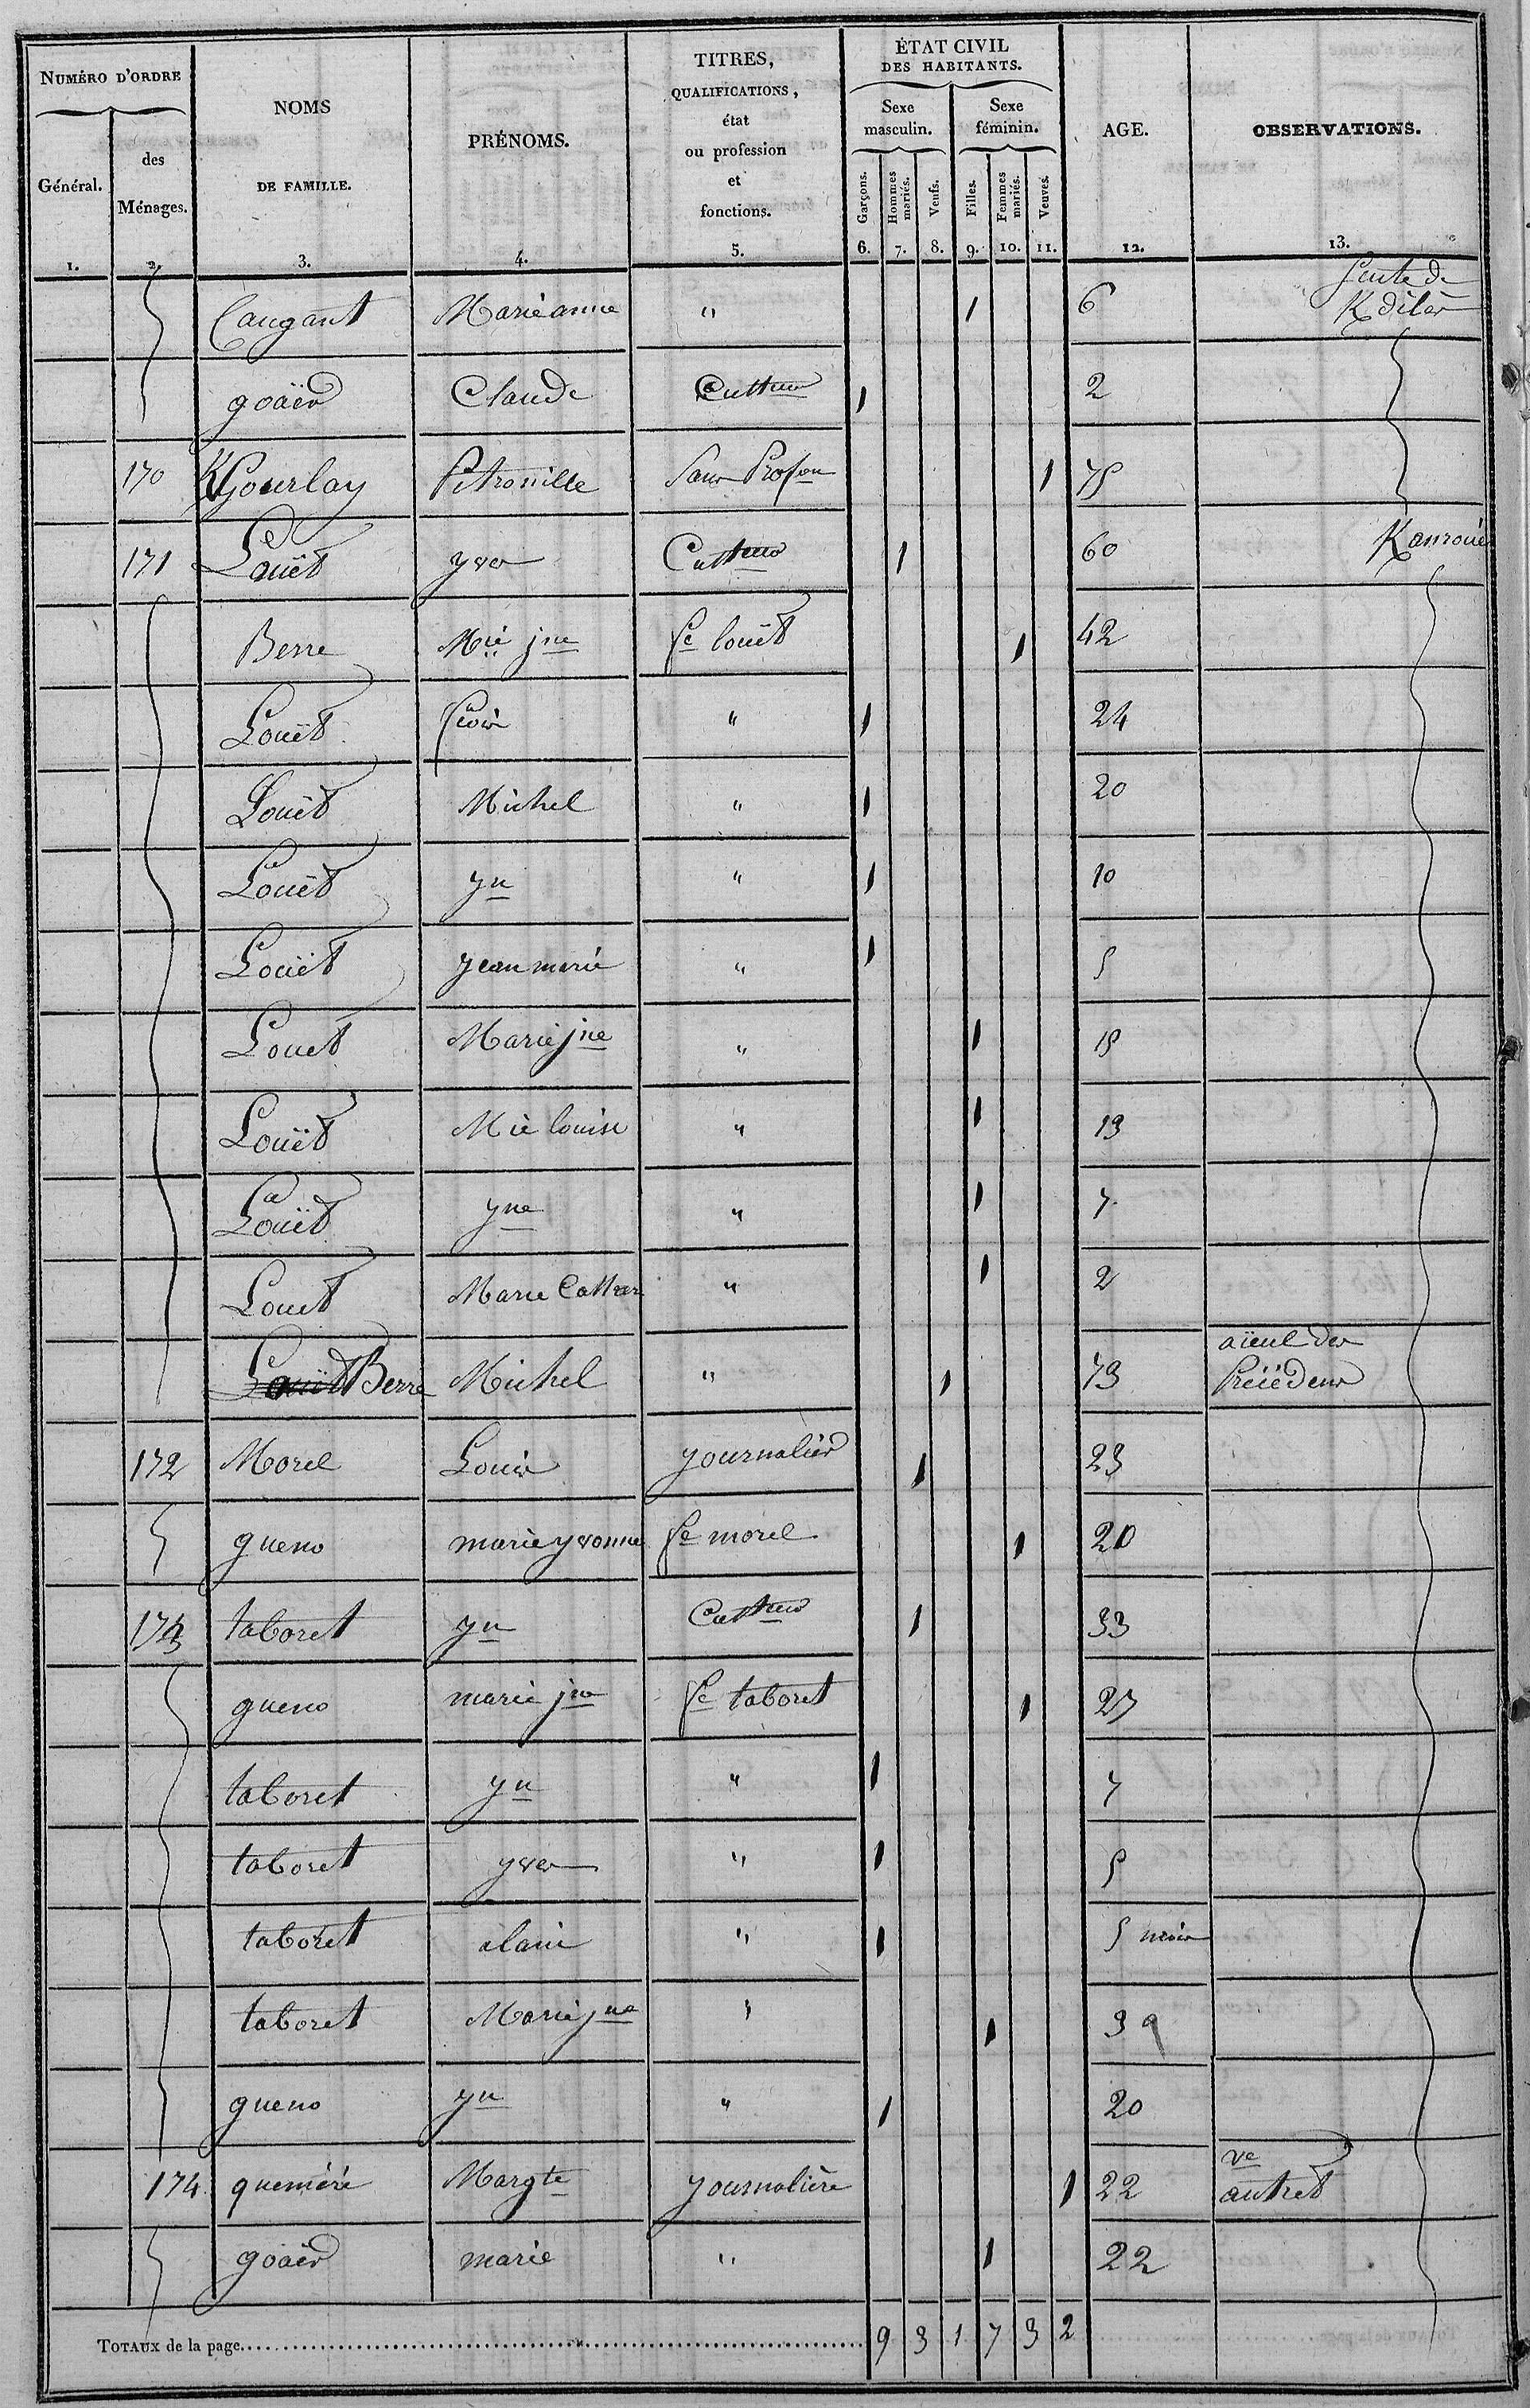 NUMÉRO D'ORDRE
Général.
des Ménages.
NOMS DE FAMILLE.
PRÉNOMS.
TITRES, QUALIFICATIONS, état ou profession et fonctions.
ÉTAT CIVIL DES HABITANTS.
Sexe masculin.
Sexe féminin.
Garçons.
Hommes mariés.
Veufs.
Filles.
Femmes mariés.
Veuves.
AGE.
OBSERVATIONS.
1. 2. 3. 4. 5. 6. 7. 8. 9. 10. 11. 12. 13.
Caugant Marieanne " 1 6
goäer Claude 1 2
170 Kgourlay Petronille Sans Profon 1 75
171 Louët yves Cultteur 1 60 Kanroué
Berre Mie jne fe louët 1 42
Louët 1 24
Louët Michel " 1 20
Louët yn " 1 10
Louët yean marie " 1 5
Louët Marie jne " 1 18
Louët Mie louise " 1 13
Louët yne " 1 7
Louët Marie Cather " 1 2
Louët Berre Michel " 1 73 aïeul des Précédens
172 Morel Louis yournalier 1 23
gueno marie yvonne fe morel 1 20
173 taboret yn Cultteur 1 33
gueno marie jne fe taboret 1 27
taboret yn " 1 7
taboret yves " 1 5
taboret alain " 1 5 mois
taboret Marie jne " 1 3
gueno yn " 1 20
174 queméré Margte yournalière 1 22 ve autret
goäer marie " 1 22
TOTAUX de la page 9 3 1 7 3 2